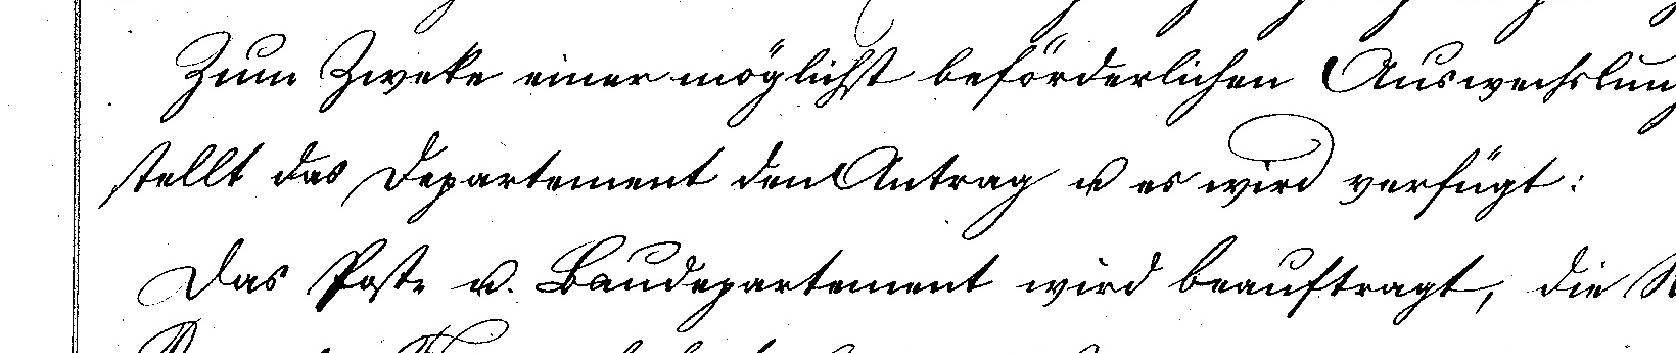 Zum Zweke einer möglichst beförderlichen Auswechslung
stellt das Departement den Antrag u es wird verfügt:
Das Post- u. Baudepartement wird beauftragt, die